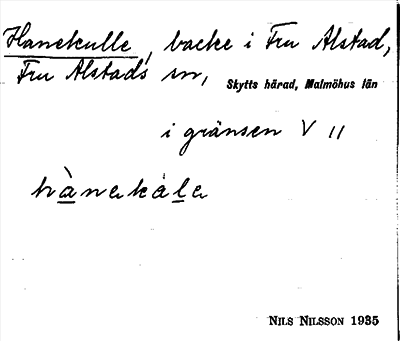 Hanekulle, backe i Fru Alstad,
Fru Alstads sn, Skytts härad, Malmöhus län
i gränsen V 11
hànekálе
NILS NILSSON 1935